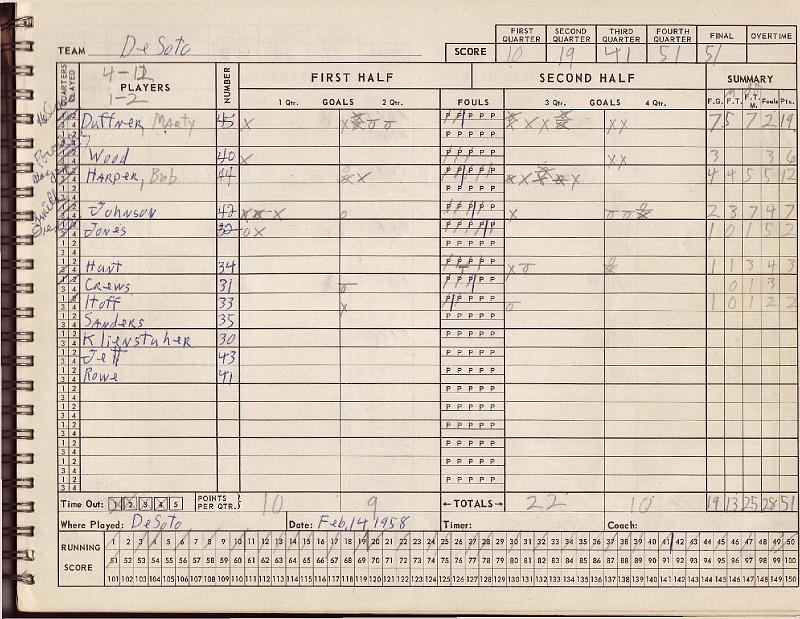 FIRST QUARTER SECOND QUARTER THIRD QUARTER FOURTH QUARTER FINAL OVERTIME
TEAM DeSoto SCORE 10 19 41 51 51
QUARTERS PLAYED 4-12 PLAYERS 1-2 NUMBER FIRST HALF SECOND HALF SUMMARY
1 Qtr. GOALS 2 Qtr. FOULS 3 Qtr. GOALS 4 Qtr. F.G. F.T. F.T.M. Fouls Pts.
Duffner, Marty 45 7 5 7 2 19
Wood 40 3 3 6
Harper, Bob 44 4 4 5 5 12
Johnson 42 2 3 7 4 7
Jones 32 1 0 1 5 2
Hunt 34 1 1 3 4 3
Crews 31 0 1 3
Hoff 33 1 0 1 2 2
Sanders 35
Klienstuher 30
Jett 43
Rowe 41
Time Out: 1 2 3 4 5 POINTS PER QTR. 10 9 ←TOTALS→ 22 10 19 13 25 28 51
Where Played: DeSoto Date: Feb, 14, 1958 Timer: Coach:
RUNNING SCORE
1 2 3 4 5 6 7 8 9 10 11 12 13 14 15 16 17 18 19 20 21 22 23 24 25 26 27 28 29 30 31 32 33 34 35 36 37 38 39 40 41 42 43 44 45 46 47 48 49 50
51 52 53 54 55 56 57 58 59 60 61 62 63 64 65 66 67 68 69 70 71 72 73 74 75 76 77 78 79 80 81 82 83 84 85 86 87 88 89 90 91 92 93 94 95 96 97 98 99 100
101 102 103 104 105 106 107 108 109 110 111 112 113 114 115 116 117 118 119 120 121 122 123 124 125 126 127 128 129 130 131 132 133 134 135 136 137 138 139 140 141 142 143 144 145 146 147 148 149 150